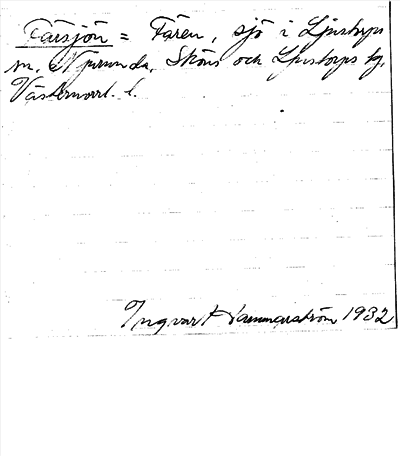 Färsjön = Fären, sjö i Ljustorps
sn. Njurunda, Sköns och Ljustorps tg,
Västernorrl. l.
Ingvar Hammarström 1932